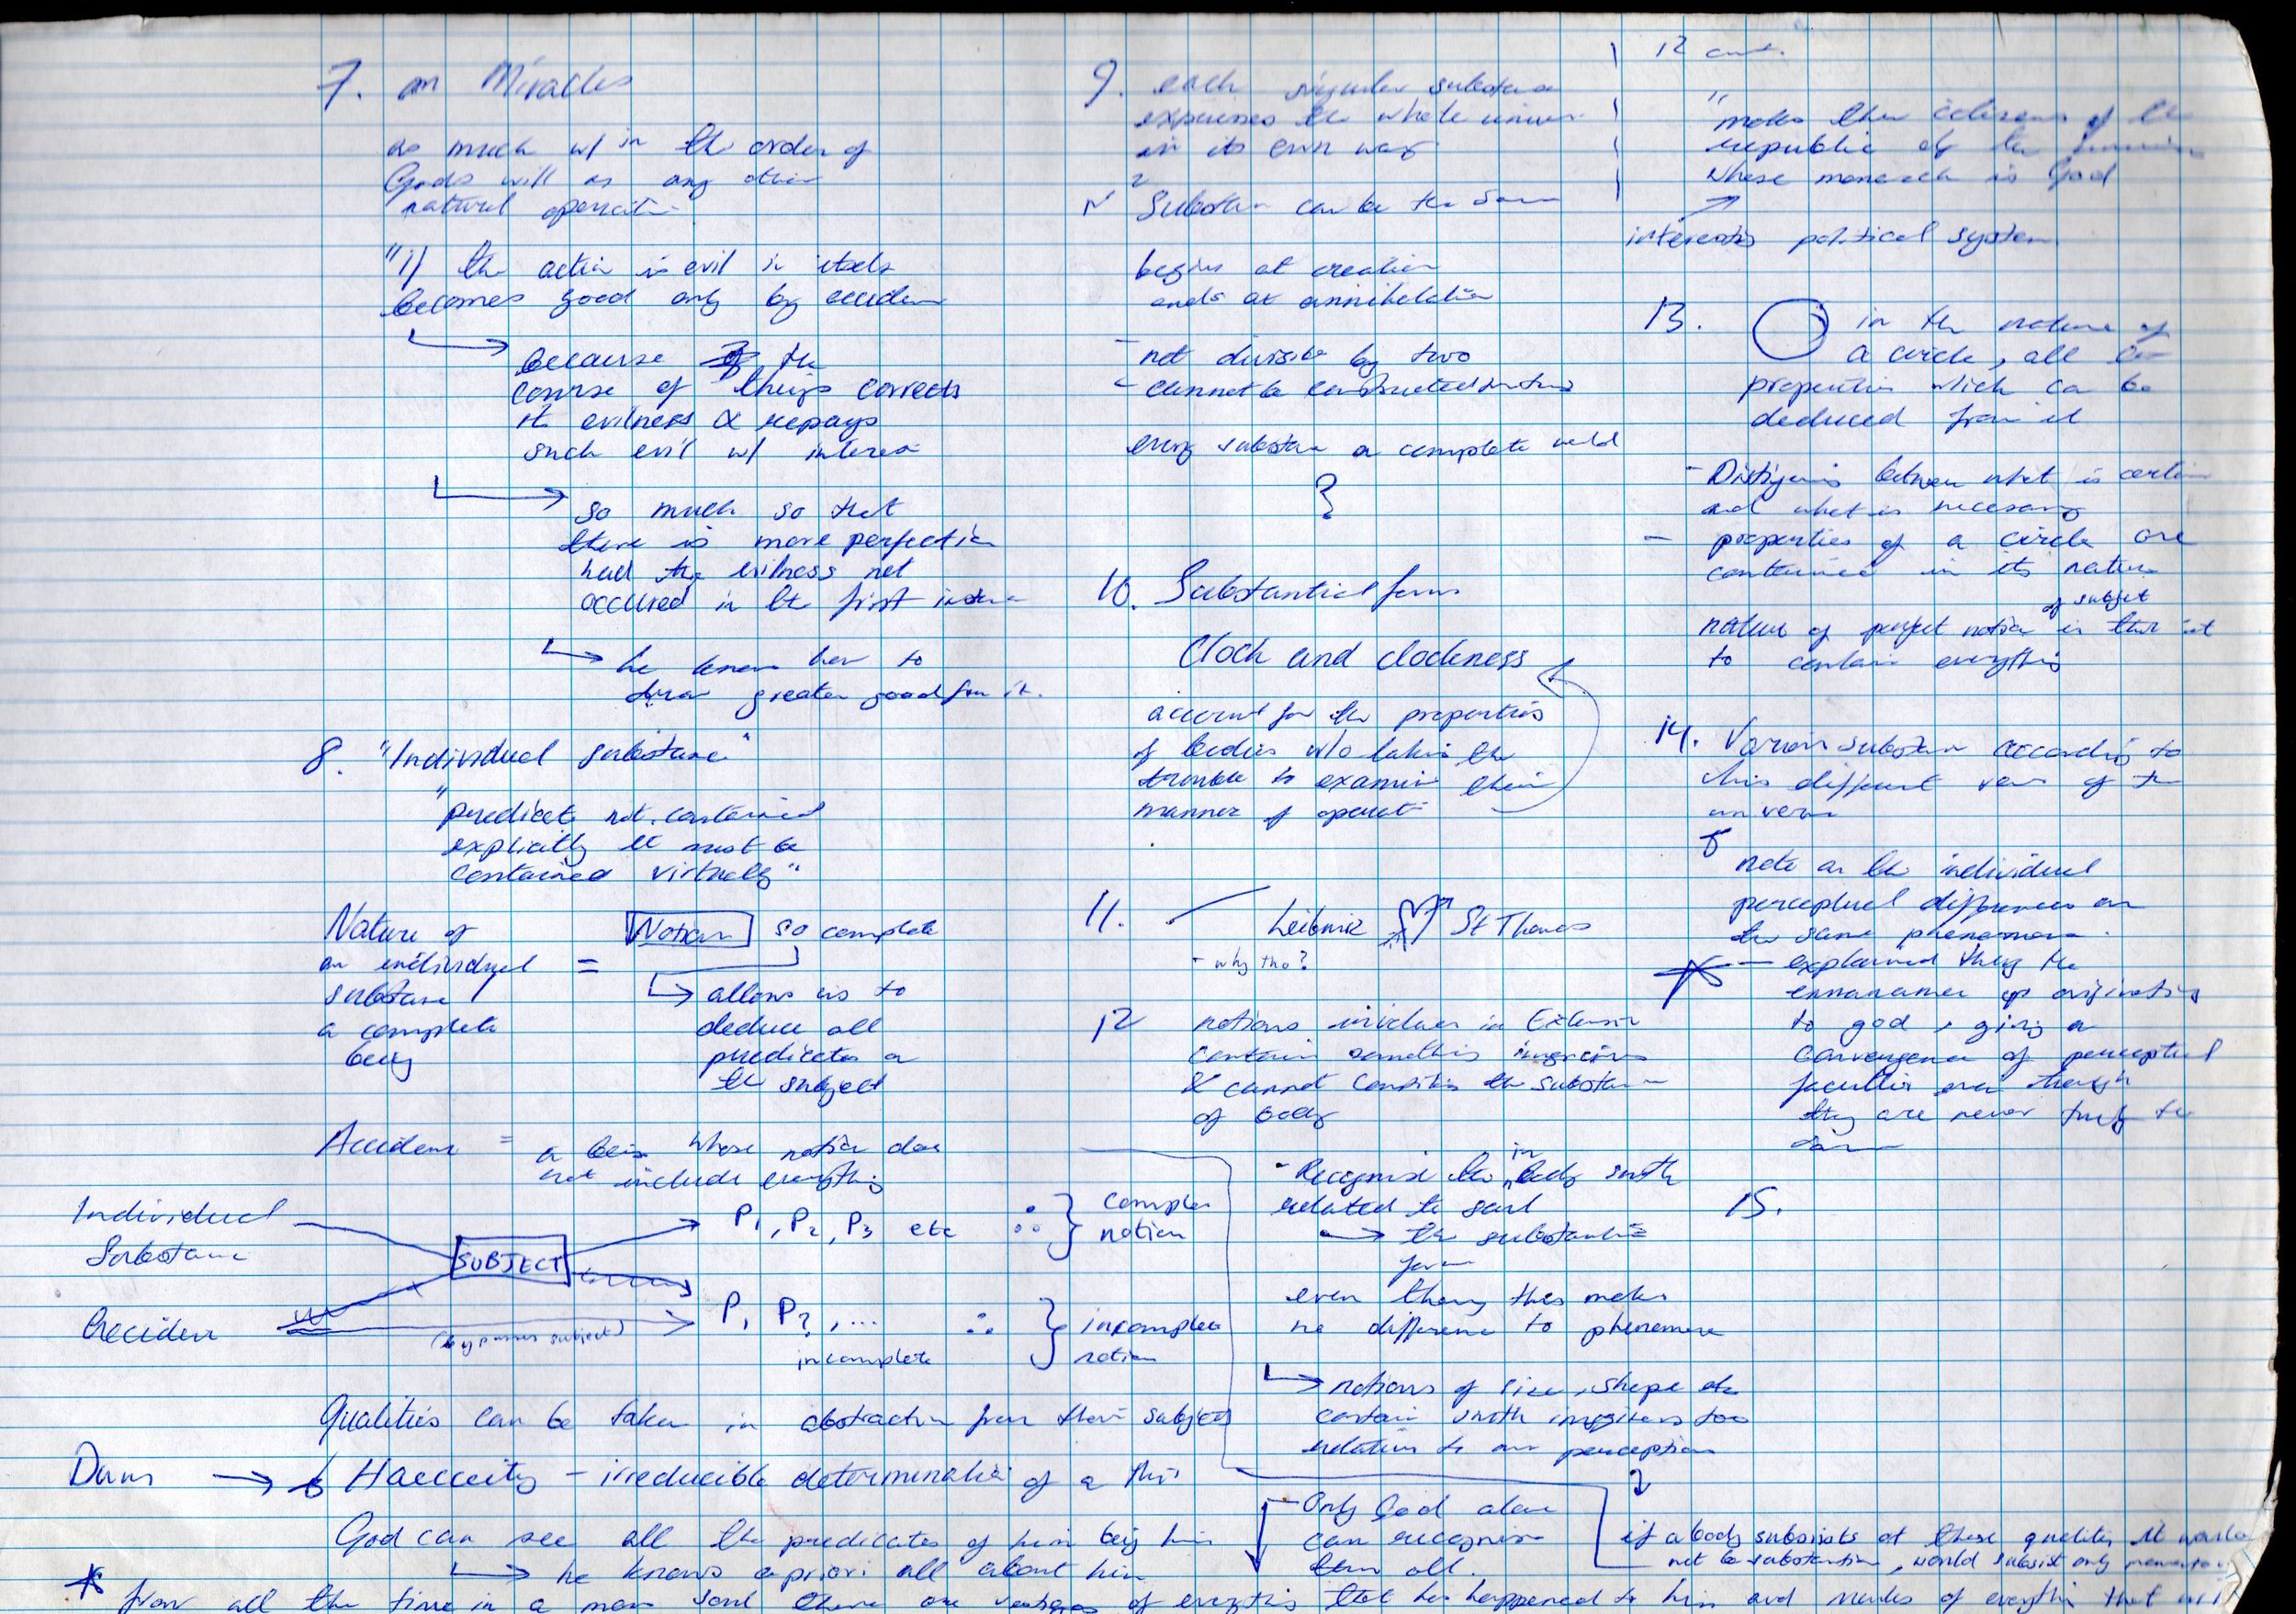 7. on Miracles
as much w/ in the order of
Gods will as any other
natural operation
"if the action is evil in itself
becomes good only by accident
because of the
course of things corrects
its evilness & repays
such evil w/ interest
so much so that
there is more perfection
had the evilness not
occured in the first instance
he knows how to
draw greater good from it.
8. "Individual substance"
"predicate not contained
explicitly it must be
contained virtually"
Nature of
an individual =
substance
a complete
being
Notion so complete
allows us to
deduce all
predicates of
the subject
Accident = a being whose notion does
not include everything
Individual
Substance
SUBJECT
P1, P2, P3 etc ∴ } complete
notion
Accident
(bypasses subject)
P1 P2, ... ∴ } incomplete
incomplete notion
Qualities can be taken in abstraction from their subjects
Duns → Haecceity - irreducible determination of a this
God can see all the predicates of him being him
he knows a priori all about him
* from all the time in a mans soul there are vestiges of everything that has happened to him and marks of everything that will
9. each singular substance
expresses the whole universe
in its own way
N Substance can be the same
begins at creation
ends at annihilation
- not divisible by two
- cannot be constructed
every substance a complete world
10. Substantial forms
Clock and clockness
account for the properties
of bodies w/o taking the
trouble to examine their
manner of operation
11. Leibniz St Thomas
- why tho?
12 notions involved in Extension
contain something imaginary
& cannot constitute the substance
of body
- Recognise the in body smth
related to soul
→ the substantial
form
even though this makes
no difference to phenomena
notions of size, shape etc
contain smth imaginary too
relative to our perception
- Only God alone
can recognise
them all.
if a body subsists of these qualities it would
not be substantive, would subsist only momentary
12 cont.
"makes them citizens of the
republic of the
whose monarch is God
interesting political system
13. in the nature of
a circle, all
properties which can be
deduced from it
- Distinguish between what is certain
and what is necessary
- properties of a circle are
contained in its nature
of subject
nature of perfect notion is that it
to contain everything
14. Various substance according to
his different view of the
universe
note on the individual
perceptual differences on
the same phenomena.
* - explained
originating
to god, giving a
convergence of perceptual
faculties even though
they are never truly the
same
15.